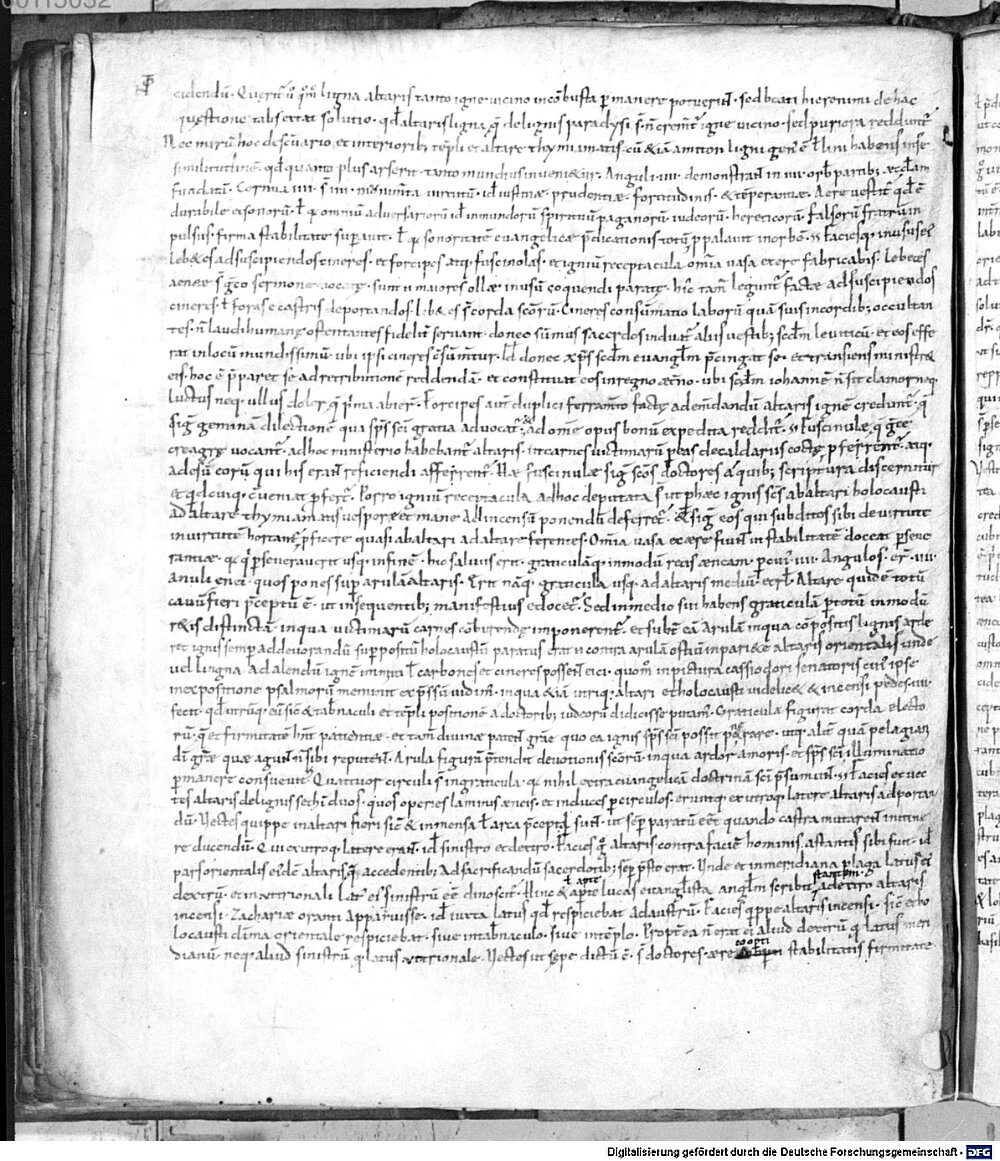 cidendū. Querit̄ u̅ qm̄ ligna altaris tanto igne uicino incōbusta p̱manere potuerint. sed beati hieronimi de hac
questione talis extat solutio. qd̄ altaris ligna que de lignis paradysi s̄ ñ cremt̄ igne uicino. sed puriora reddunt̄.
Nec mirū hoc de scuario et interiorib; tēpli et altare thymiamatis. cū &iā amiton ligni gen' ē t̄ lini habens in se
similitudinē. qd̄ quanto plus arserit tanto mundius inueni&ur. Anguli IIII demonstrant in IIII orb̄ partib; ęccl̄am
fundatū. Cornua IIII s̄ IIII uirtutū. id iusticiae prudentiae. fortitudinis. & tēperantiae. Aere uestit̄ qd̄ ē
durabile et sonorū. t̄ q̄ omniū aduersariorū id inmundorū spirituū paganorū iudeorū. hereticorū. falsorū fratrū in
pulsus firma stabilitate sup̱auit. t̄ q̄ sonoritate euangelicae p̄dicationis totū p̱ palauit in orbē. Facies q; in usus ei
leb&es ad suscipiendos cineres. et forcipes atq; fuscinolas. et igniū receptacula. omīa uasa ex ere fabricabis. Lebetes
aeneae s̄ gco sermone uocatę. sunt ū maiores ollae in usū coquendi paratę. hic tam̄ legunt̄ factae ad suscipiendos
cineres. t̄ foras e castris deportandos. Leb&es s̄ corda scōrū. Cineres consumatio laborū quā suis in cordib; occultan
tes. ñ laudi humanę ostentantes fidelit̄ seruant. donec sūmus sacerdos induat̄ aliis uestib; scd̄m leuiticū. et eos effe
rat in locū mundissimū. ubi ipsi cineres csūmt̄ur. Id donec xp̄s scd̄m euanglm̄ p̄cingat se. et transiens ministr&
eis. hoc ē p̄paret se ad retributionē reddendā. et constituat eos in regno aeterno. ubi scd̄m iohannē ñ sit clamor neq;
luctus neq; ullus dolor. q̄ p̄ma abier̄. Forcipes aut̄ duplici ferramto factę ad emdandū altaris ignē credunt̄. q̄
sig̅ geminā dilectionē qua sp̄s sc̄i gratia aduocat̄. & ad omē opus bonū expedita reddit̄. Fuscinulae q̄ grce
creagrę uocant̄. ad hoc ministerio habebant̄ altaris. ut carnes uictimarū p̱ eas de caldariis coctę p̱ferrent̄. atq;
ad esū eorū qui his erant reficiendi afferrent̄. Nae fuscinulae sig̅ scōs doctores a quib; scriptura discernitur
et qd̄ cuiq; cueniat p̱fert̄. Porro igniū receptacula ad hoc deputata sunt p̱ haec ignis scs̄ ab altari holocausti
ad altare thymiamatis uesp̱ere et mane ad incensū ponendū deferret̄. & sig̅ eos qui subditos sibi de uirtute
in uirtutē hortant̄ p̱ficere quasi ab altari ad altare ferentes. Omīa uasa ex aere fiunt in stabilitatē doceat p̱seue
rantiae. q̄ q p̱seuerauerit usq; in finē. hic saluus erit. graticulāq; in modū retis aeneam. p̱ cui' IIII angulos er̄ IIII
anuli enei. quos pones sup̱ arulā altaris. Erit naq; graticula usq; ad altaris mediū. et rl̄. Altare quidē totū
cauū fieri p̄ceptū ē. ut in sequentib; manifestius edocet̄. Sed in medio sui habens graticulā p̱ totū in modū
r&is distinctā. in qua uictimarū carnes cōburendę imponerent̄. et subt̄ eā arulā in qua cōpositis lignis arde
ret ignis semp̱ ad deuorandū sup̱positū holocaustū paratus. erat ū contra arulā ostiū in pari&e altaris orientalis unde
uel lingna ad alendū ignē inmitti t̄ carbones et cineres possent eici. quom in pictura cassiodori senatoris cui' ipse
in expositione psalmorū meminit exp̱ssū uidim'. in qua &iā utriq; altari et holocausti uidelic& & incensi pedes IIII
fecit. qd̄ utrūq; eū sic̄ & tab̄naculi et tēpli positionē a doctorib; iudeorū didicisse putam'. Graticula figurat corda electo
rū. q̄ et firmitatē hn̄t patientiae. et tam̄ diuinae patent grae quo ea ignis sp̄s sc̄i possit p̱forare. utq; alit̄ quā pelagian
di grae quae agunt ñ sibi reputent. Arula figurā p̄tendit deuotionis scōrū. in qua ardor amoris. et sp̄s sc̄i illuminatio
p̱manere consueuit. Quattuor circuli s̄ in graticula. q̄ nihil extra euangelicā doctrinā sc̄i p̄sumunt. Facies et uec
tes altaris de lignis sethi duos. quos operies laminis aeneis. et induces p̱ circulos. eruntq; ex utroq; latere altaris ad portan
dū. Vectes quippe in altari fieri sic̄ & in mensa t̄ arca p̄cepti sunt. ut semp̱ paratū ēet quando castra mutarent in itine
re ducendū. Qui ex utroq; latere erant. id sinistro et dextro. Facies q̄ altaris contra faciē hominis astantis sibi fuit. id
pars orientalis eidē altaris q̄ accedentib; ad sacrificandū sacerdotib; semp̱ p̄sto erat. Unde et in meridiana plaga latus ei'
dextrū. et in ... lat' ei' sinistrū ēe dinoscit̄. Hinc & aperte lucas euanglista anglm̄ scribit stantem a dextro altaris
incensi. Zachariae oranti apparuisse. id iuxta latus qd̄ respiciebat ad austrū. Facies q̱ppe altaris incensi. sic̄ et ho
locausti clima orientale respiciebat. siue in tab̄naculo. siue in tēplo. Propt̄ea ñ erat ei aliud dextrū q̄ latus meri
dianū neq; aliud sinistrū q̄ latus ... Vectes ut sepe dictū ē. s̄ doctores. aere coopti stabilitatis firmitate.
Digitalisierung gefördert durch die Deutsche Forschungsgemeinschaft - DFG